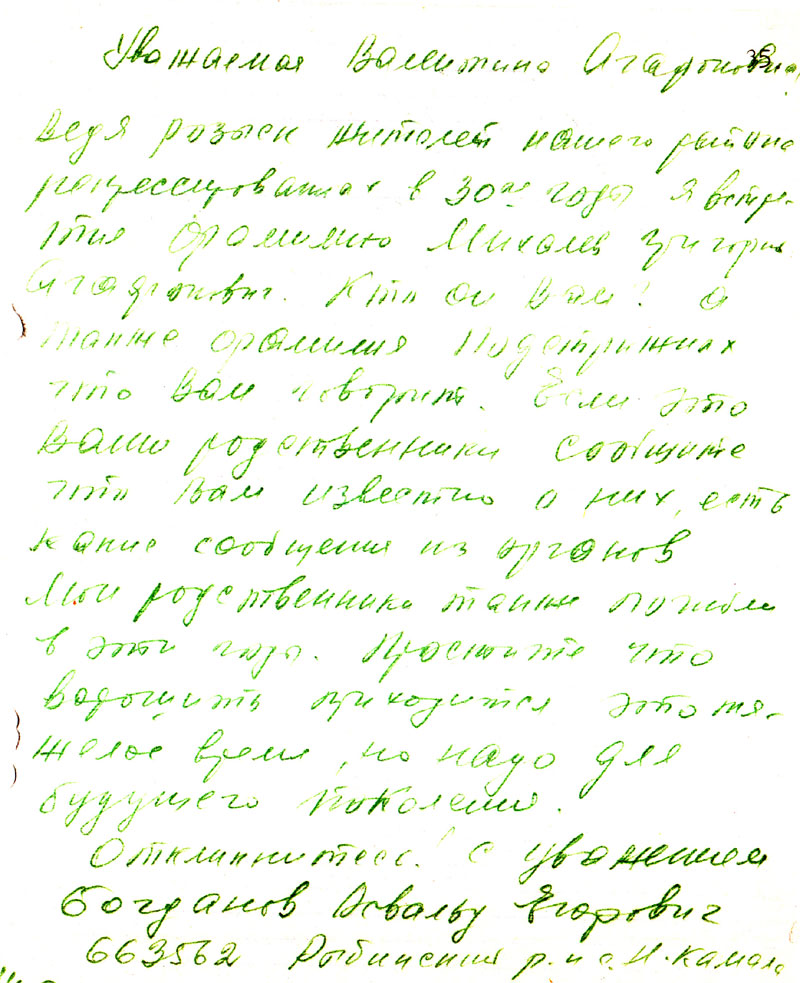 Уважаемая Валентина Агафоновна,
35
Ведя розыск жителей нашего района
репрессированных в 30ые годы я встре-
тил фамилию Михалев Григорий
Агафонович. Кто он Вам? а
также фамилия Подстрижных
что Вам говорит. Если это
Ваши родственники сообщите
что Вам известно о них, есть
какие сообщения из органов
Мои родственники также погибли
в эти годы. Простите что
ворошить приходится это тя-
желое время, но надо для
будущего поколения.
Откликнитесь! с уважением
Богданов Освальд Егорович
663562 Рыбинский р-н с. Н-Камала